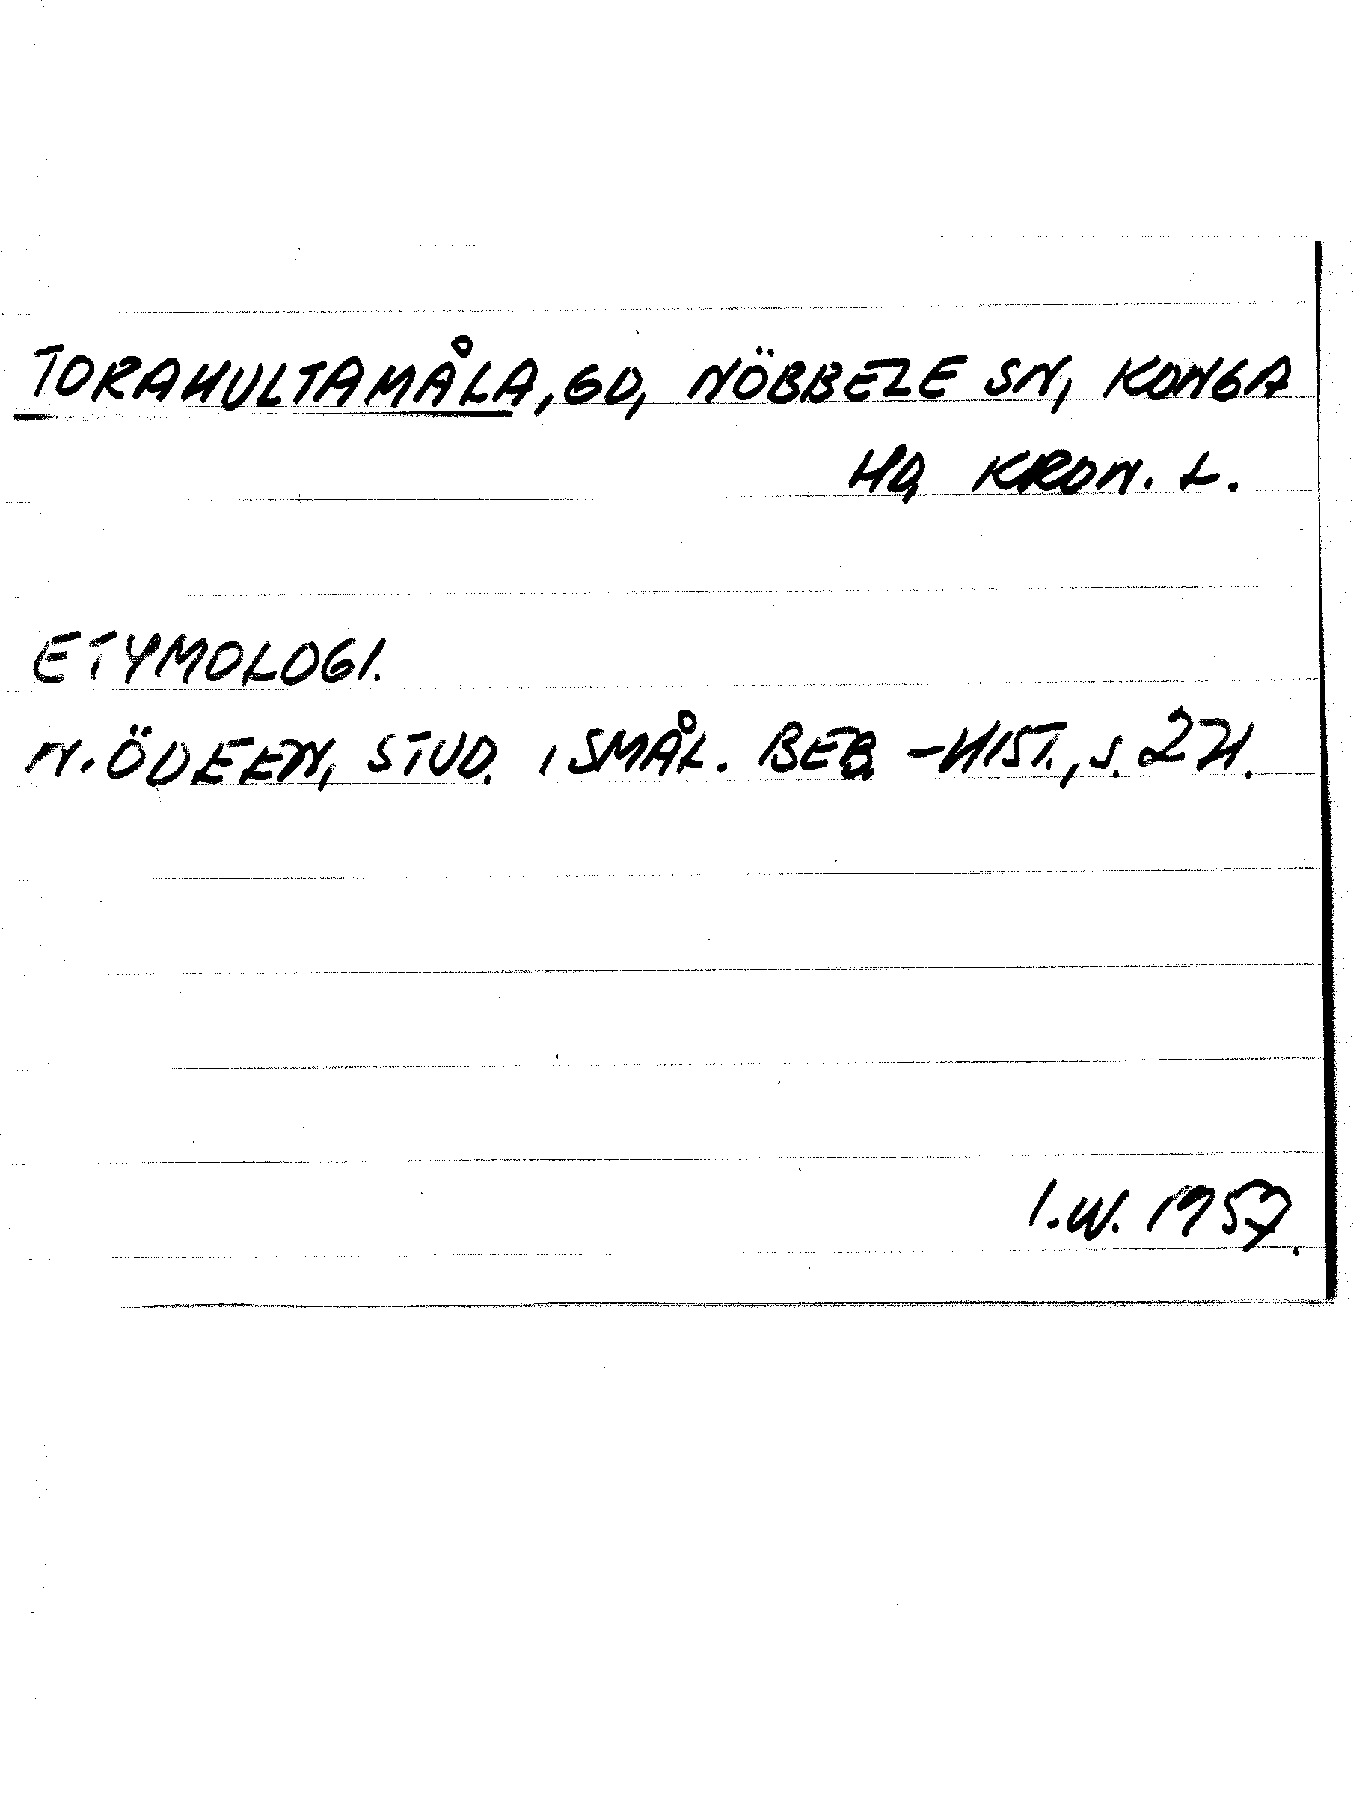 TORAHULTAMÅLA, GD, NÖBBELE SN, KONGA
HD, KRON. L.
ETYMOLOGI.
N. ÖDEEN, STUD. I SMÅL. BEB. -HIST., S.
I.W. 1957.